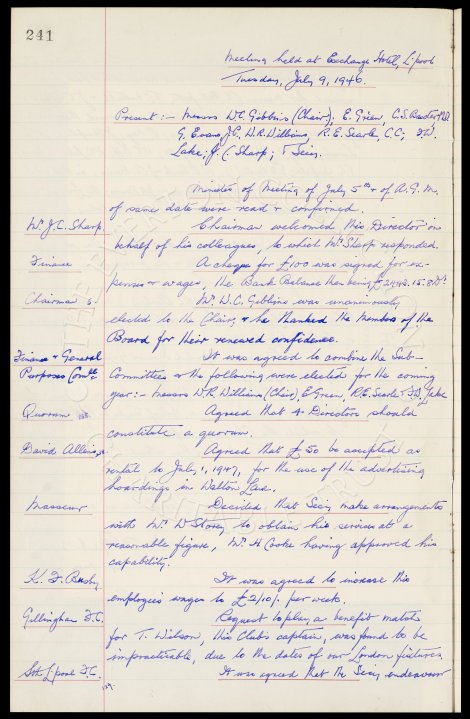 241
Meeting held at Exchange Hotel, L'pool
Tuesday, July 9, 1946.
Present :- Messrs W.C. Gibbins (Chair); E. Green, C.S. Baxter
G. Evans, J.P., W.R. Williams, R.E. Searle, C.C.;
Lake; J.C. Sharp; & Secy.
Minutes of Meeting of July 5th & of A.G.M.
of same date were read & confirmed.
Mr J.C. Sharp
Chairman welcomed this Director on
behalf of his colleagues, to which Mr Sharp responded.
Finance
A cheque for £100 was signed for ex-
penses & wages, the Bank Balance then being
Chairman
Mr W.C. Gibbins was unanimously
elected to the Chair, & he thanked the Members of the
Board for their renewed confidence.
Finance & General
It was agreed to combine the Sub-
Purposes Comtte
Committees & the following were elected for the coming
year:- Messrs W.R. Williams (Chair) E. Green, R.E. Searle & Lake
Quorum
Agreed that 4 Directors should
constitute a quorum.
David Allens,
Agreed that £50 be accepted as
rental to July, 1, 1947, for the use of the advertising
hoardings in Walton Lane.
Masseur
Decided that Secy make arrangements
with Mr W Storey to obtain his services at a
reasonable figure, Mr H Cooke having approved his
capability.
K. F. Busby
It was agreed to increase this
employee's wages to £2/10/- per week.
Gillingham F.C.
Request to play a benefit match
for T. Wilson, this Club's captain, was found to be
impracticable, due to the dates of our London fixtures.
Sth L'pool F.C.
It was agreed that the Secy endeavour